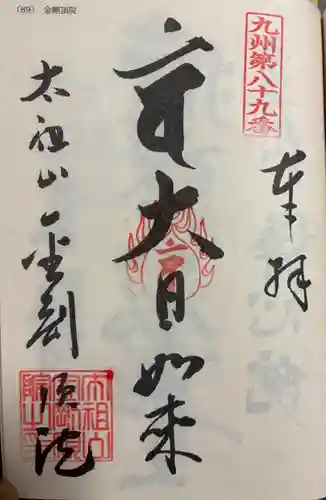 (89) 金剛頂院
九州第八十九番
奉拝
本尊 大日如来
太祖山 金剛頂院